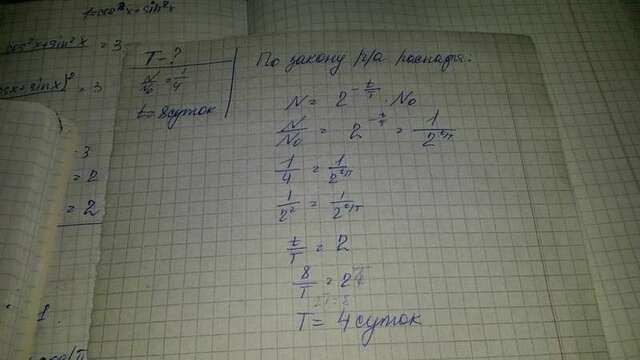 1=cos²x+sin²x
cos²x+sin²x = 3
sinx)² = 3
3
= 2
= 2
1.
T - ?
N/N₀ = 1/4
t = 8 суток
По закону р/а распада:
N = 2^(-t/T) · N₀
N/N₀ = 2^(-t/T) = 1/2^(t/T)
1/4 = 1/2^(t/T)
1/2² = 1/2^(t/T)
t/T = 2
8/T = 2
2T = 8
T = 4 суток